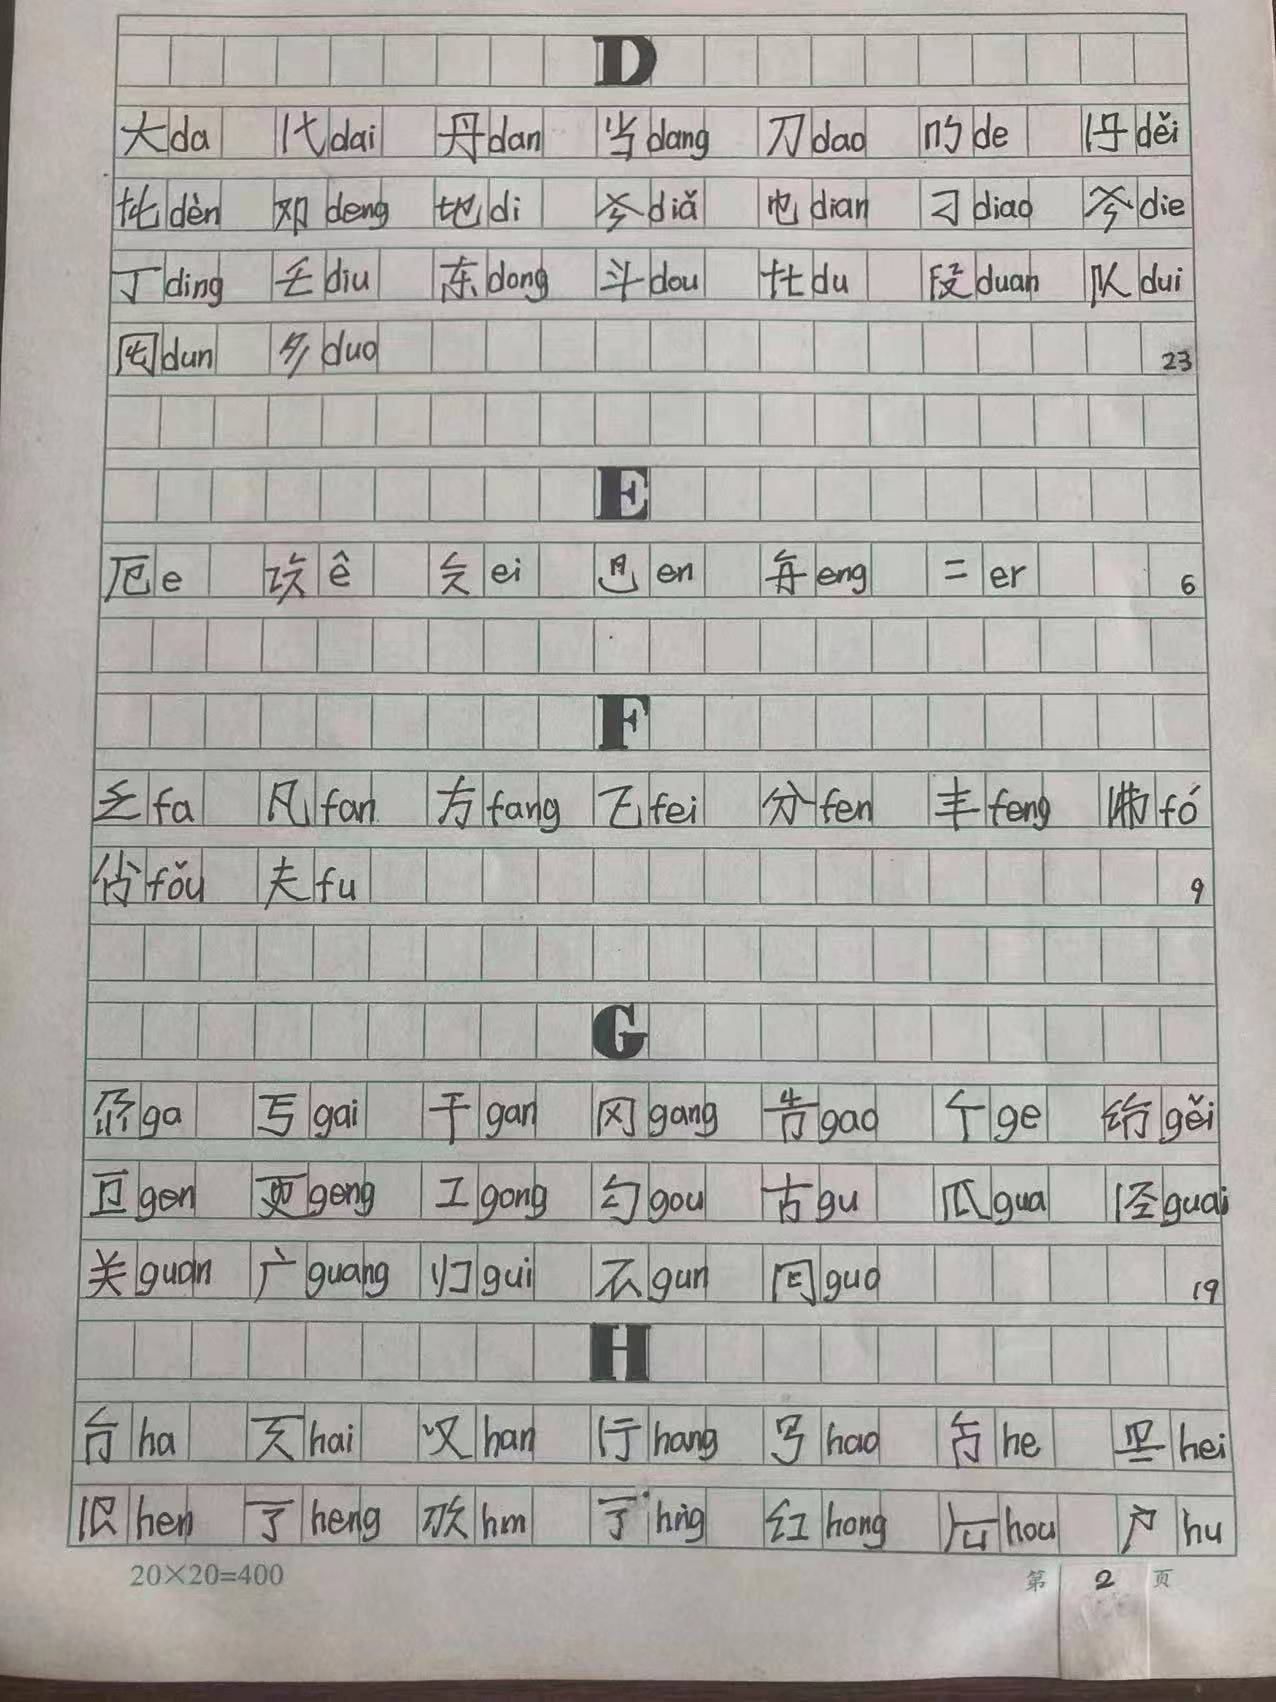 D
大da 代dai 丹dan 当dang 刀dao 的de děi
dèn 邓deng 地di diǎ 电dian 刁diao die
丁ding 丢diu 东dong 斗dou du 段duan 队dui
囤dun 多duo 23
E
厄e ê ei en eng 二er 6
F
fa 凡fan 方fang 飞fei 分fen 丰feng fó
fǒu 夫fu 9
G
ga 丐gai 干gan 冈gang 告gao 个ge 给gěi
gen 更geng 工gong 勾gou 古gu 瓜gua 怪guai
关guan 广guang 归gui gun guo 19
H
ha hai 汉han 行hang 号hao he hei
hen heng hm hng 红hong hou 户hu
20×20=400 第 2 页